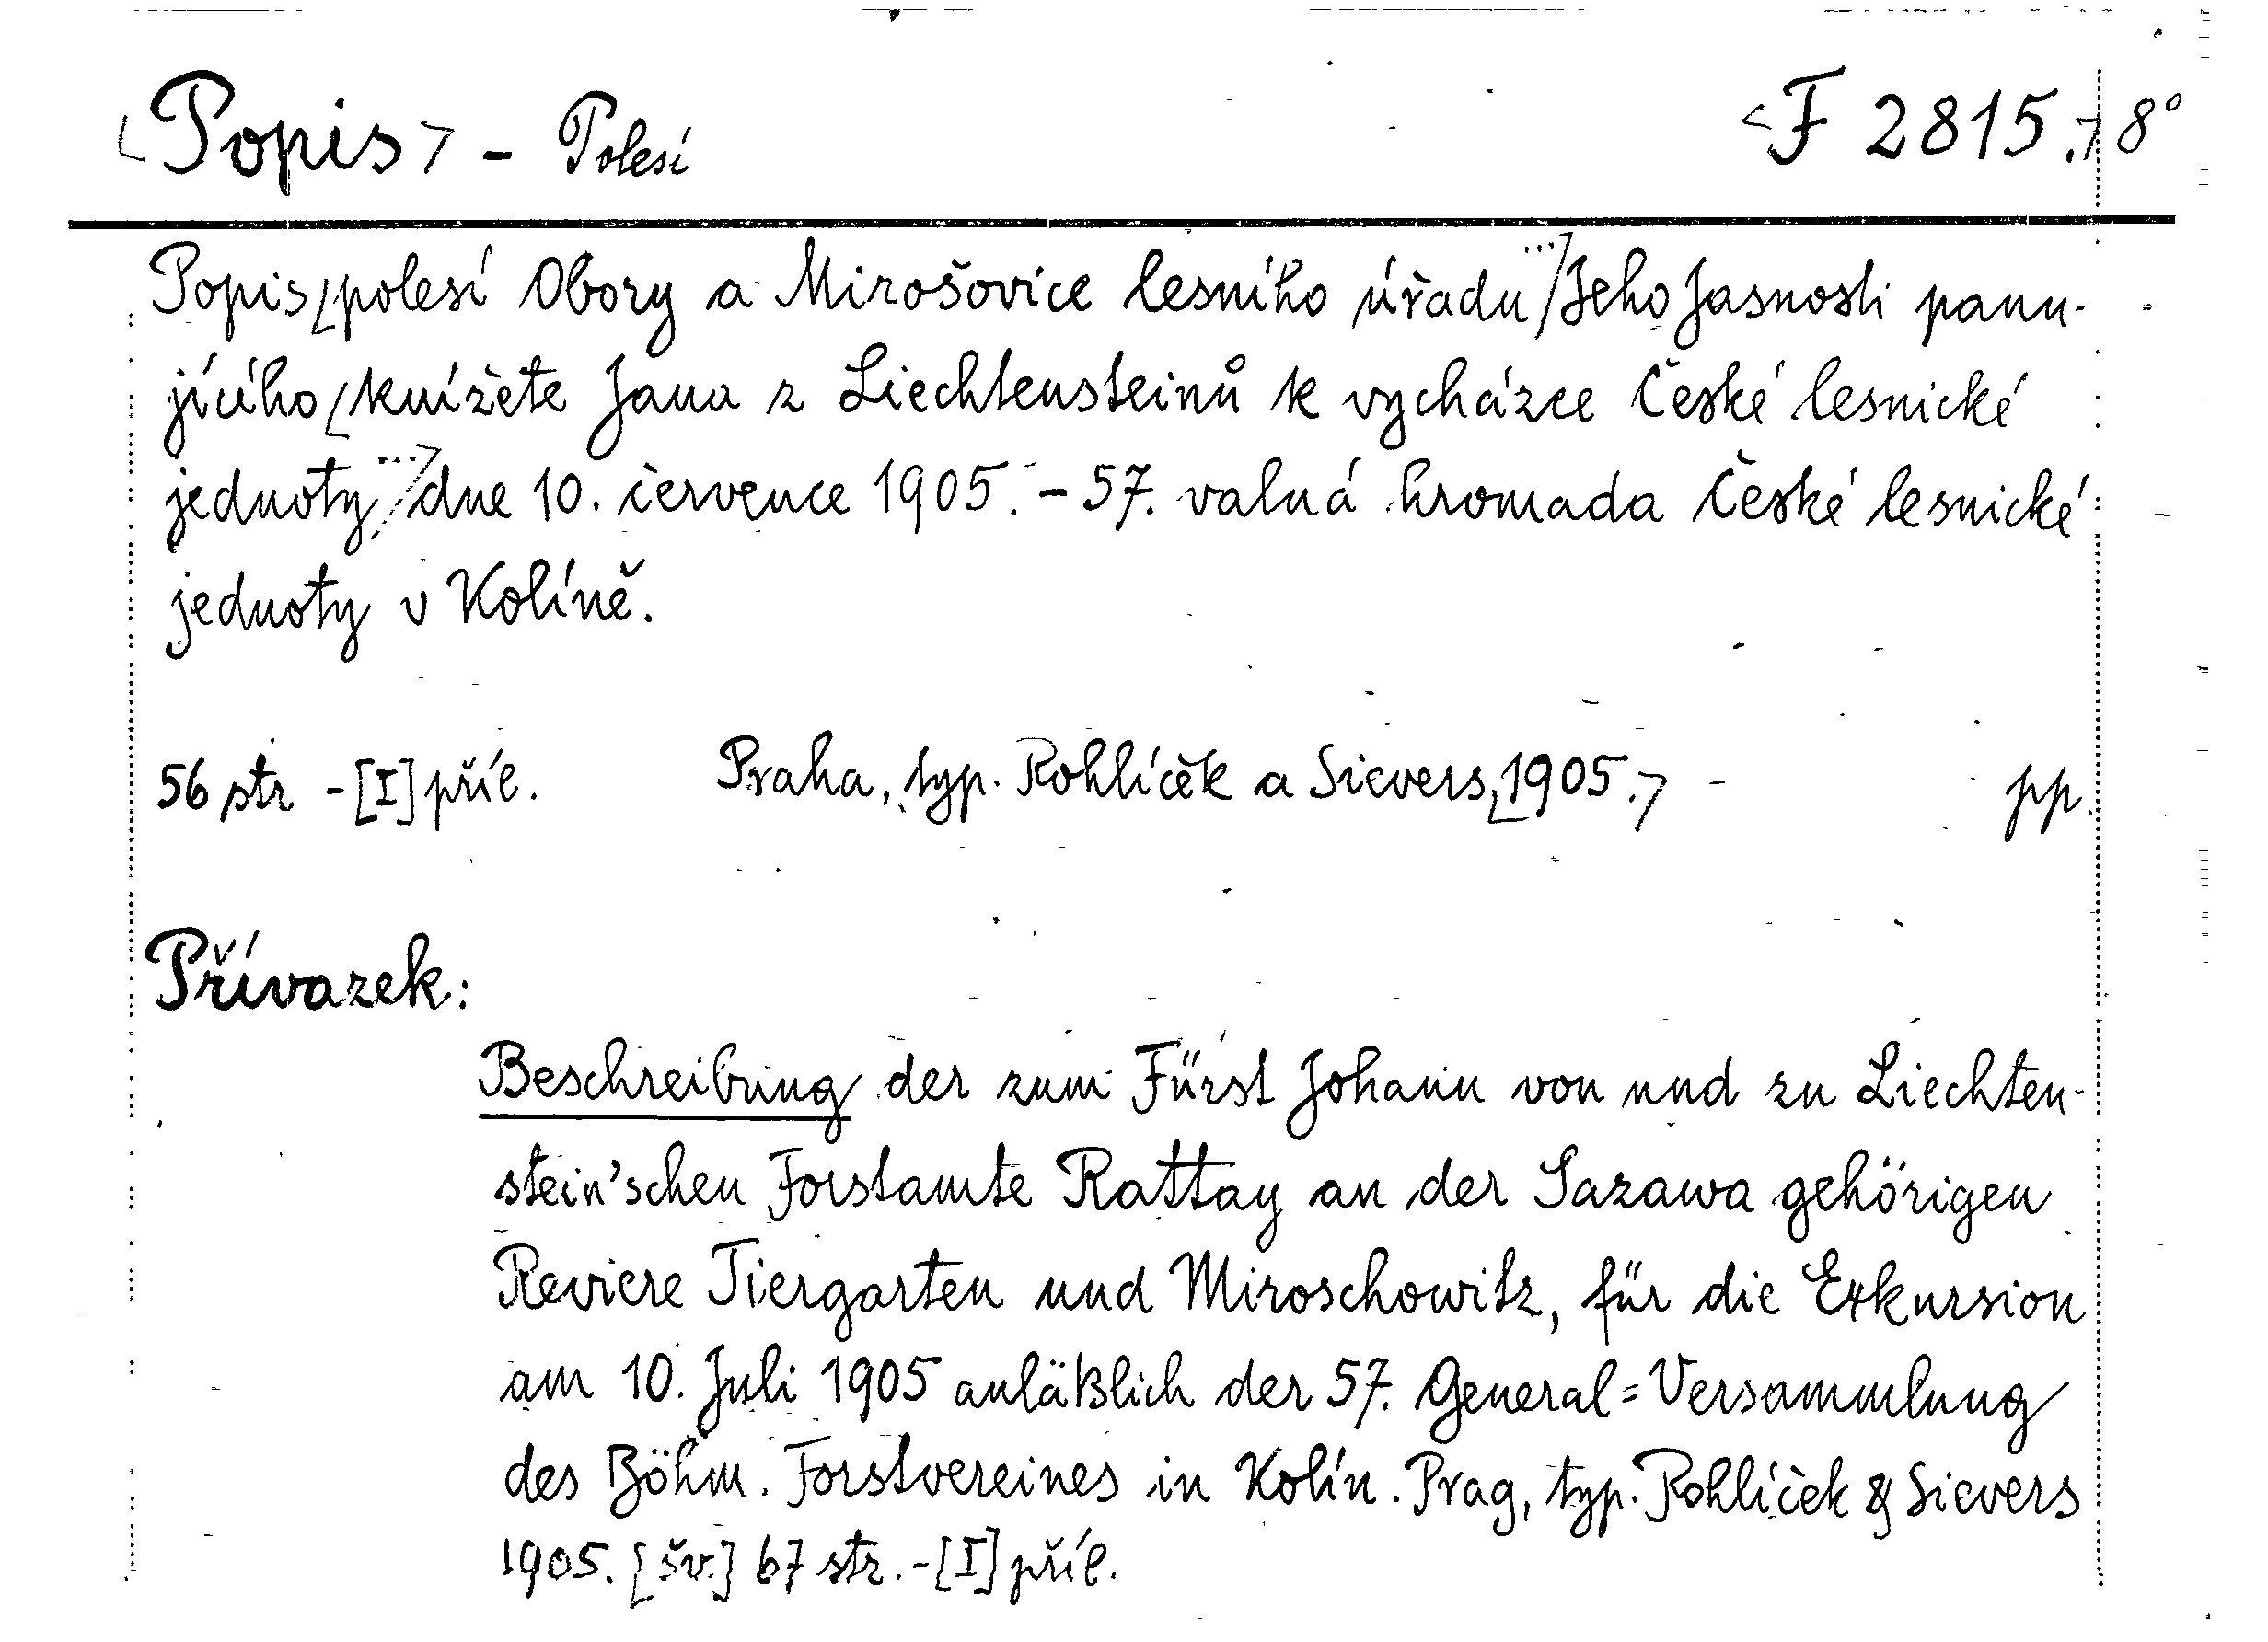 Popis - Polesí
F 2815. 8°
Popis polesí Obory a Mirošovice lesního úřadu Jeho Jasnosti panu-
jícího knížete Jana z Liechtensteinů k vycházce České lesnické
jednoty dne 10. července 1905. - 57. valná hromada České lesnické
jednoty v Kolíně.
56 str - [I] příl. Praha, typ. Rohlíček a Sievers, 1905. pp.
Přívazek:
Beschreibung der zum Fürst Johann von und zu Liechten-
stein'schen Forstamte Rattay an der Sazawa gehörigen
Reviere Tiergarten und Miroschowitz, für die Exkursion
am 10. Juli 1905 anläßlich der 57. General=Versammlung
des Böhm. Forstvereines in Kolín. Prag, typ. Rohlíček & Sievers
1905. [šv.] 67 str. - [I] příl.